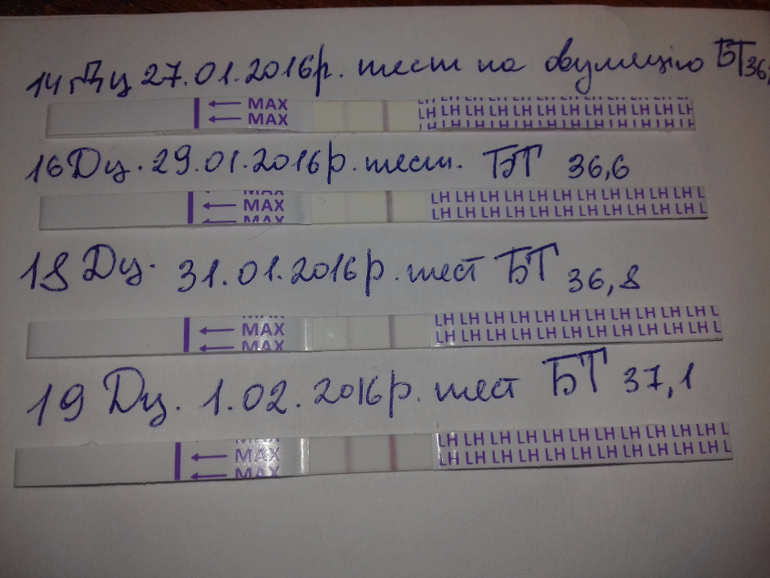 14 Дц 27.01.2016р. тест на овуляцію БТ 36,
MAX
MAX
LH LH LH LH LH LH LH LH LH LH LH LH
LH LH LH LH LH LH LH LH LH LH LH LH
16 Дц. 29.01.2016р. тест. БТ 36,6
MAX
MAX
LH LH LH LH LH LH LH LH LH LH LH L
LH LH LH LH LH LH LH LH LH LH LH L
18 Дц. 31.01.2016р. тест БТ 36,8
MAX
MAX
LH LH LH LH LH LH LH LH LH LH LH L
LH LH LH LH LH LH LH LH LH LH LH L
19 Дц. 1.02.2016р. тест БТ 37,1
MAX
MAX
LH LH LH LH LH LH LH LH LH LH LH L
LH LH LH LH LH LH LH LH LH LH LH L